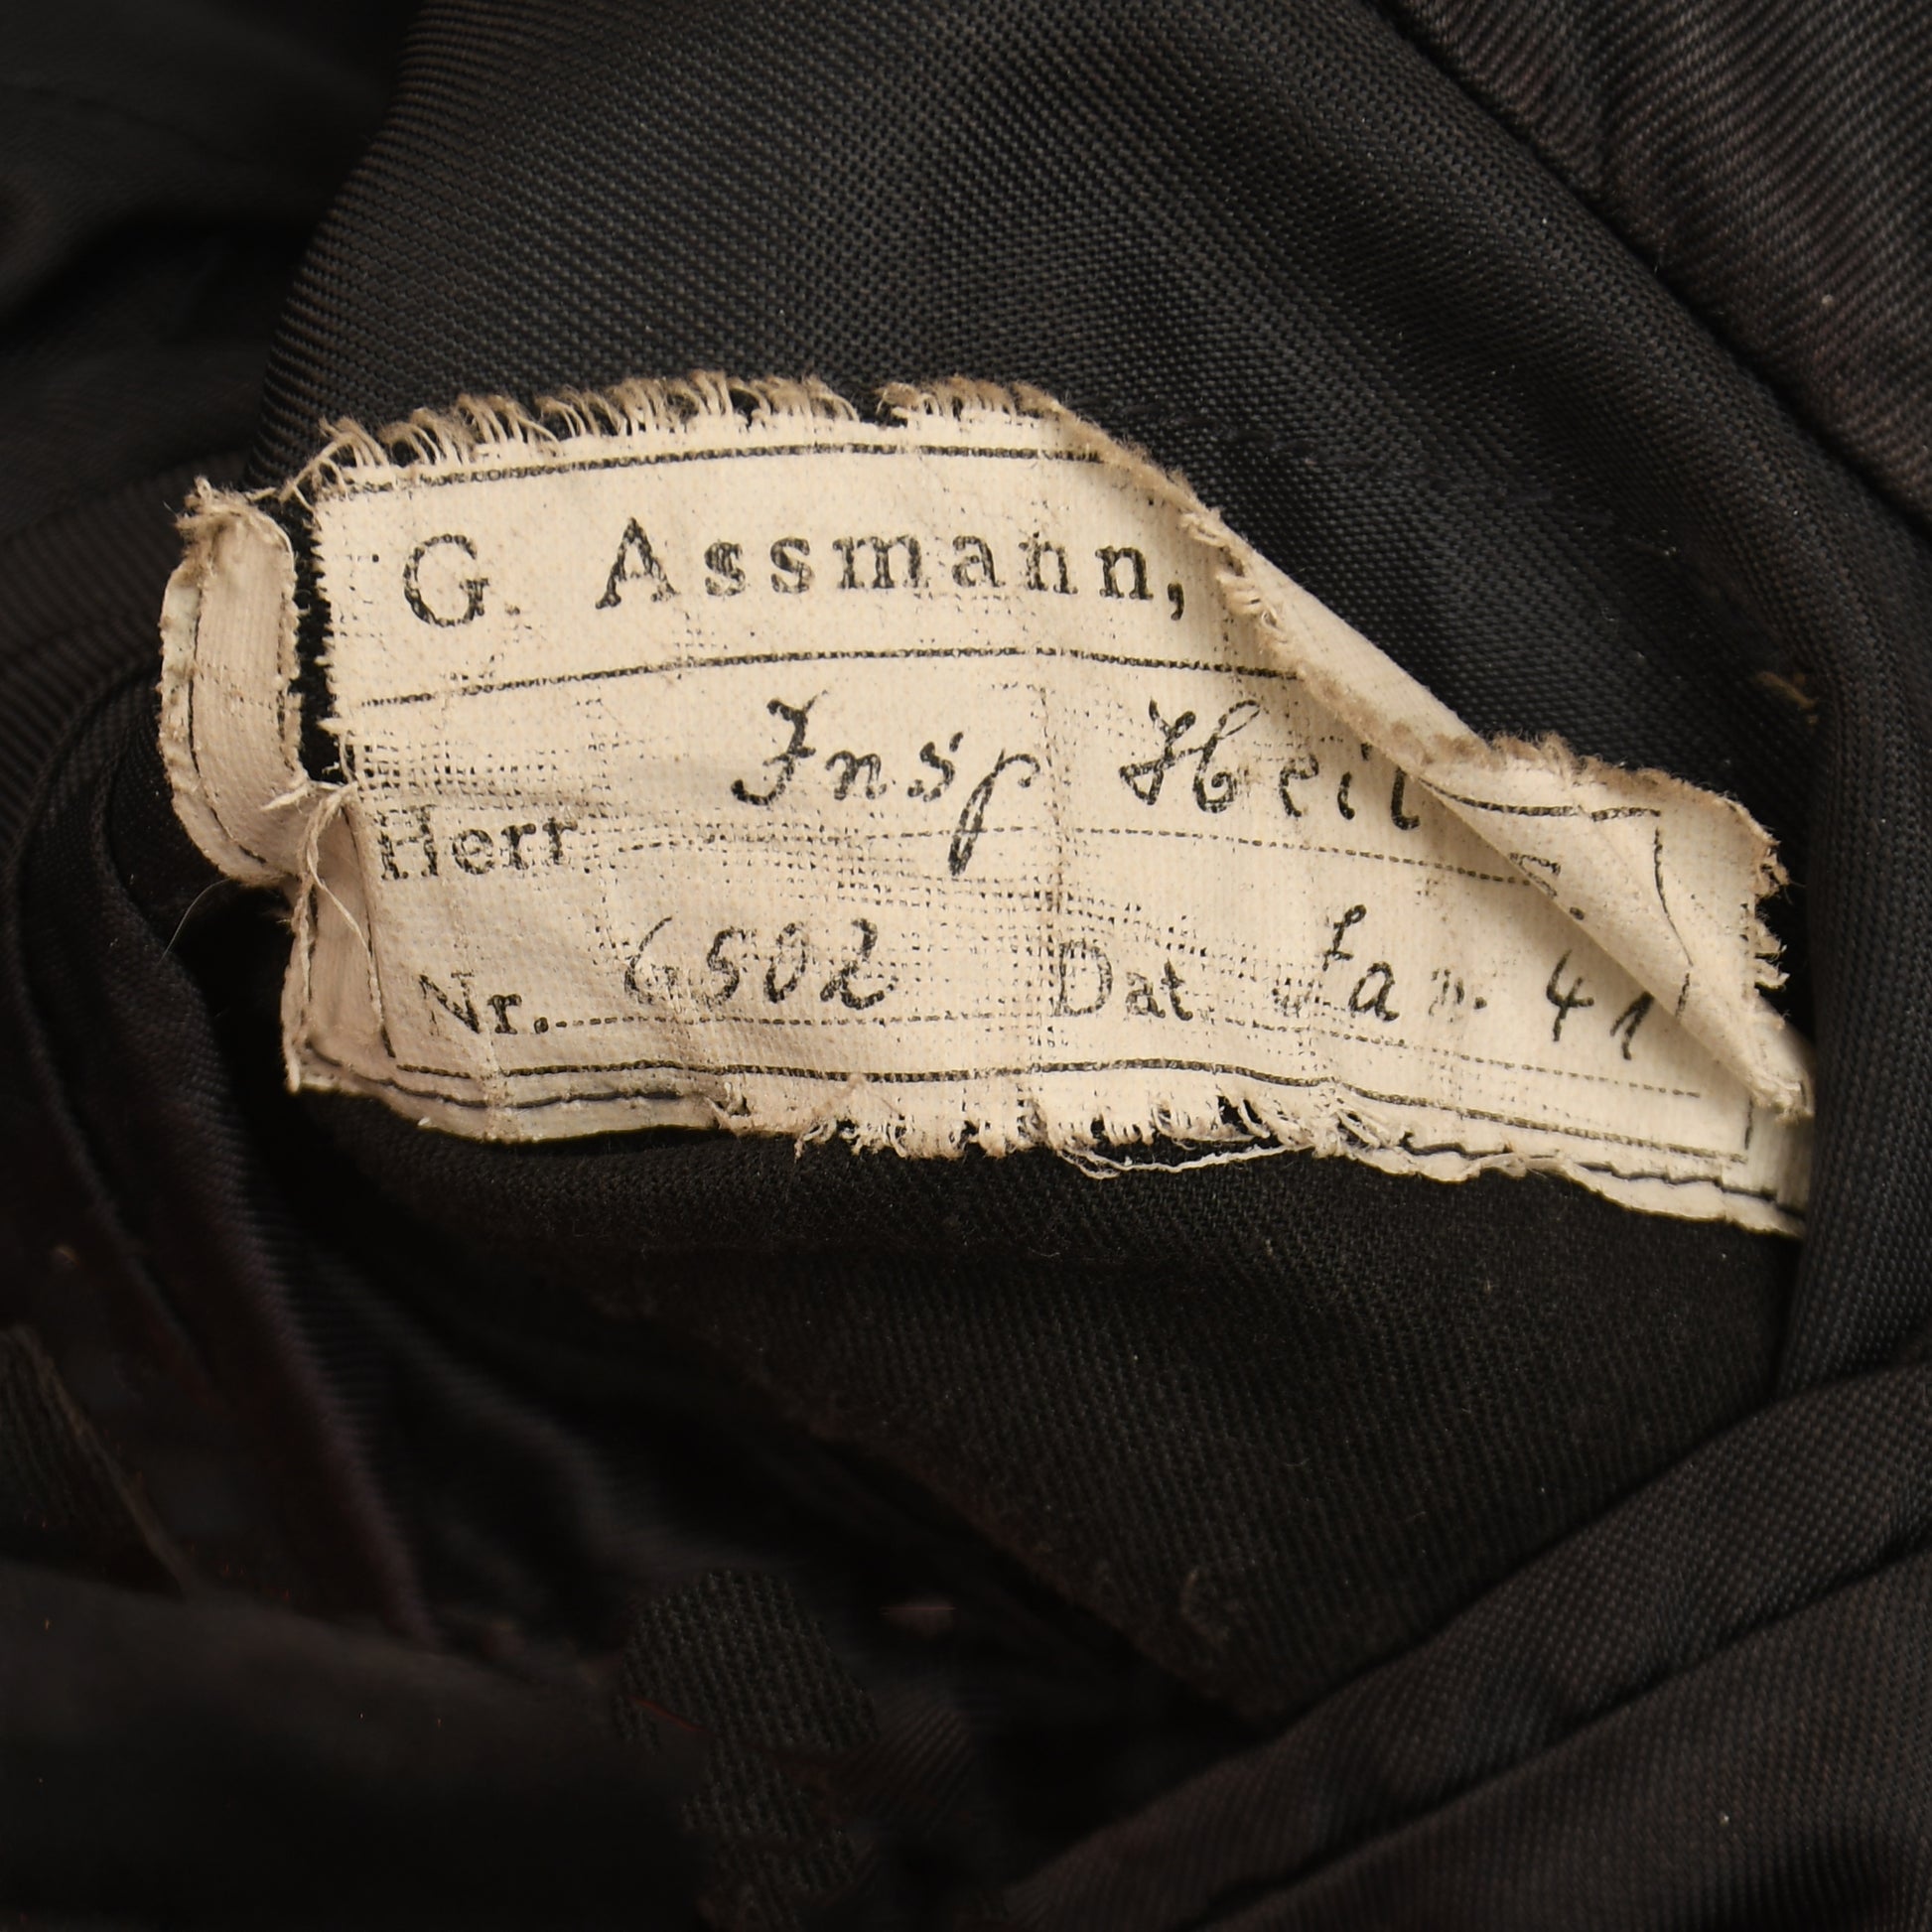 G. Assmann,
Insp Heil
Herr
Nr. 6502 Dat. Jan. 41